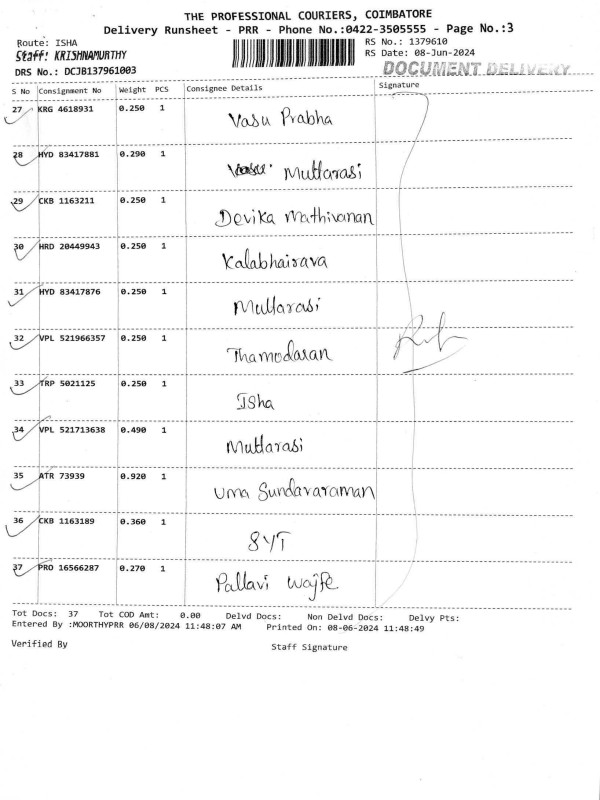 THE PROFESSIONAL COURIERS, COIMBATORE
Delivery Runsheet - PRR - Phone No.:0422-3505555 - Page No.:3
Route: ISHA RS No.: 1379610
Staff: KRISHNAMURTHY RS Date: 08-Jun-2024
DRS No.: DCJB137961003 DOCUMENT DELIVERY
S No Consignment No Weight PCS Consignee Details Signature
27 KRG 4618931 0.250 1 Vasu Prabha
28 HYD 83417881 0.290 1 Muttarasi
29 CKB 1163211 0.250 1 Devika Mathivanan
30 HRD 20449943 0.250 1 Kalabhairava
31 HYD 83417876 0.250 1 Muttarasi
32 VPL 521966357 0.250 1 Thamodasan
33 TRP 5021125 0.250 1 Isha
34 VPL 521713638 0.490 1 Muttarasi
35 ATR 73939 0.920 1 Uma Sundavaraman
36 CKB 1163189 0.360 1 SYT
37 PRO 16566287 0.270 1 Pallavi Wajfe
Tot Docs: 37 Tot COD Amt: 0.00 Delvd Docs: Non Delvd Docs: Delvy Pts:
Entered By :MOORTHYPRR 06/08/2024 11:48:07 AM Printed On: 08-06-2024 11:48:49
Verified By Staff Signature